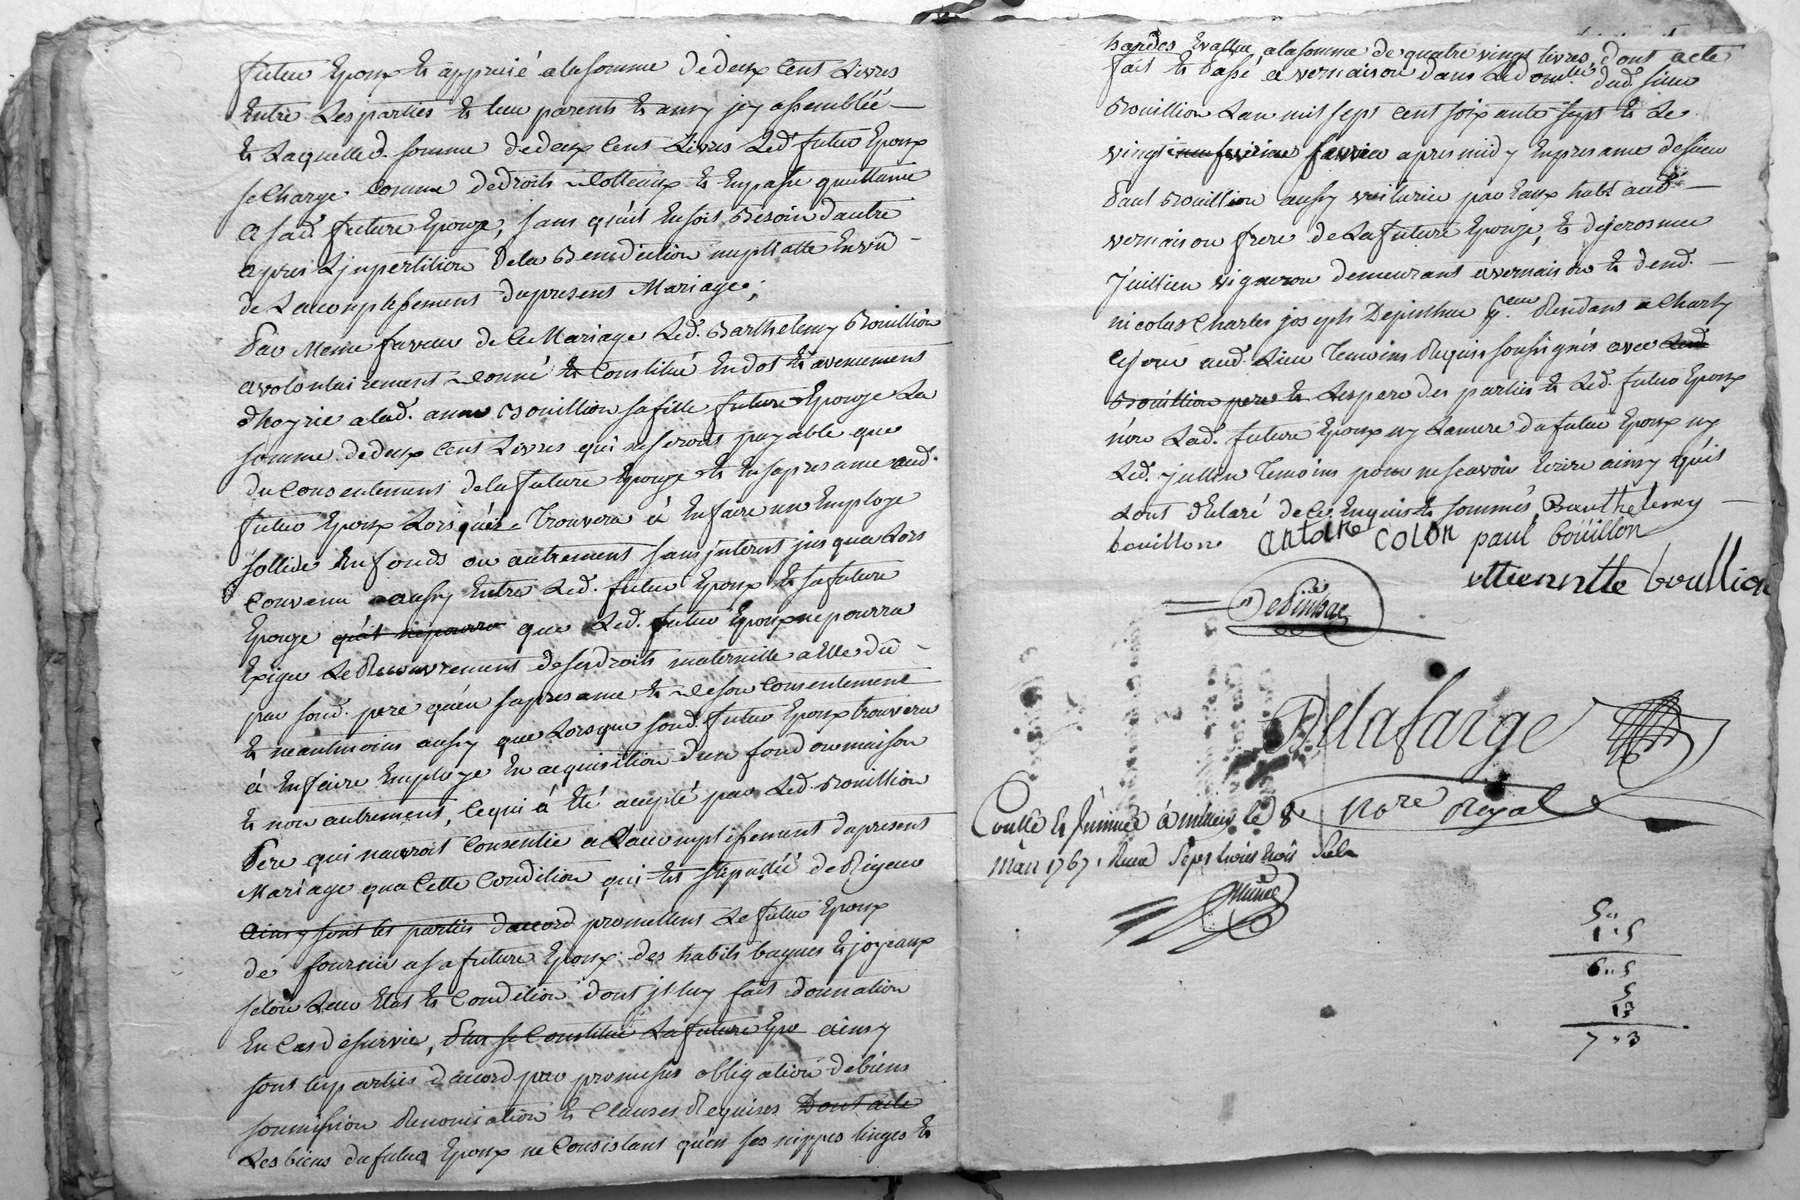 futur Epoux et apprecié a la somme de deux Cent Livres
Entre Les parties et leur parents et amy jcy assemblée
Et Laquelle d. somme de deux Cent Livres Led. futur Epoux
se Charge Comme de droits et En passe quittance
a sad. future Epouze, sans qu'il En soit Besoin d'autre
apres L'jnpertition de la Benediction nuptialle En vû
de Lacomplissement du present Mariage,
Par Meme faveur de Ce Mariage Led. Barthelemy Bouillion
a volontairement donné et Constitué En dot et avencement
dhoyrie a lad. anne Bouillion sa fille future Epouze La
somme de deux Cent Livres qui ne seront payable que
du Consentement de la future Epouze et En sa presance aud.
futur Epoux Lors qu'il Trouvera à En faire un Employe
sollide En fonds ou autrement sans jnterest jusqua Lors
Convenu aussy Entre Led. futur Epoux et sa future
Epouze qu'il ne pourra que Led. futur Epoux ne pourra
Exiger Le Recouvrement de ses droits maternelle a Elle dû
par sond. pere qu'en sa presance et de son Consentement
et neantmoins aussy que Lorsque sond. futur Epoux trouvera
à En faire Employe En acquisition d'un fond ou maison
et non autrement, Ce qui à Eté accepté par Led. Bouillion
Pere qui nauroit Consentie a Lacomplissement du present
Mariage qua Cette Condition qui Est stipullée de Rigeur
ainsy sont les parties d'acord promettent Le futur Epoux
de fournir a sa future Epoux des habits bagues et joyeaux
selon Leur Etat et Condition dont jl luy fait donnation
En Cas de survie, Plus se Constitue La future Epo ainsy
sont les parties d'acord par promesses obligation de biens
soumission Renonciation et Clauses Requises Dont acte
Les biens du futur Epoux ne Consistant qu'en ses nippes linges et
hardes Evallué, a la somme de quatre vingt livres, dont acte
fait et Passé a vernaison dans Le domlle dud. sieur
Bouillion Lan mil sept Cent soixante sept et Le
vingt neufvieme fevrier apres midy En presance de sieur
Paul Bouillion aussy voiturier par Eaux habt. aud.
vernaison frere de La future Epouze, et de jerosme
Juillien vigneron demeurant a vernaison et de nd.
nicolas Charles joseph Depinthac Rendant a Charly
Ce jour aud. Lieu Temoins Requis soussignés avec Led.
Bouillion pere et Les pere des parties et Led. futur Epoux
non Lad. future Epoux ny La mere du futur Epoux ny
Led. jullien Temoins pour ne scavoir Ecrire ainsy quils
Lont declaré de Ce Enquis et sommés, Barthelemy
bouillon antoine colon paul bouillon
ettiennette boullion
Delafarge
Nore Royal
Contlé et Jnsinué à millery le 8
Mars 1767. Reçu Sept livres trois sols
5..
1..5
6..5
5
13
7..3